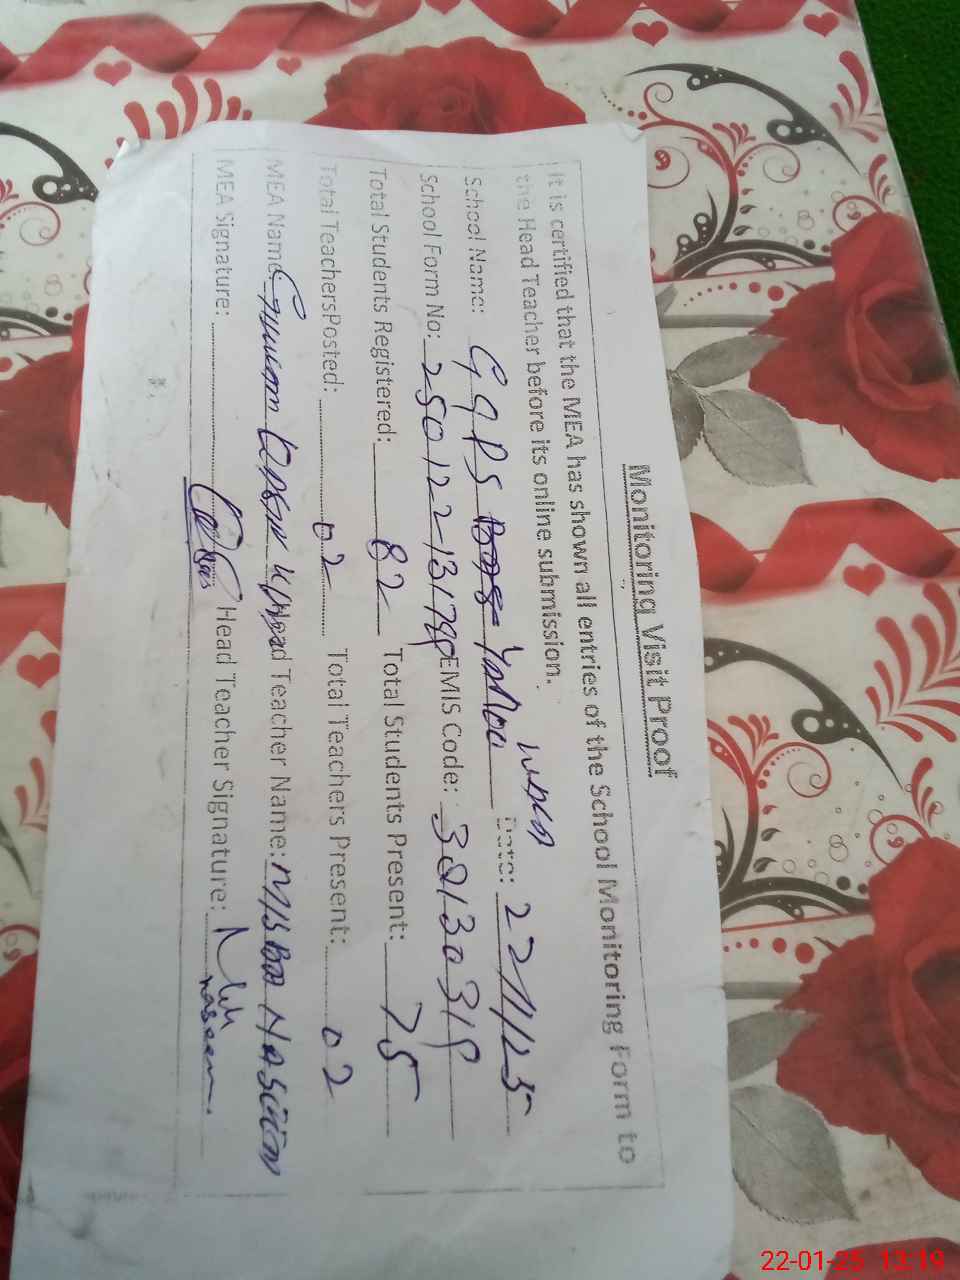 Monitoring Visit Proof
It is certified that the MEA has shown all entries of the School Monitoring Form to
the Head Teacher before its online submission.
School Name: GGPS Date: 22/1/25
School Form No: 250122-13179 EMIS Code:
Total Students Registered: 82 Total Students Present: 75
Total TeachersPosted: 02 Total Teachers Present: 02
MEA Name: Head Teacher Name: Misbaa Naseem
MEA Signature: Head Teacher Signature: naseem
22-01-25 13:19